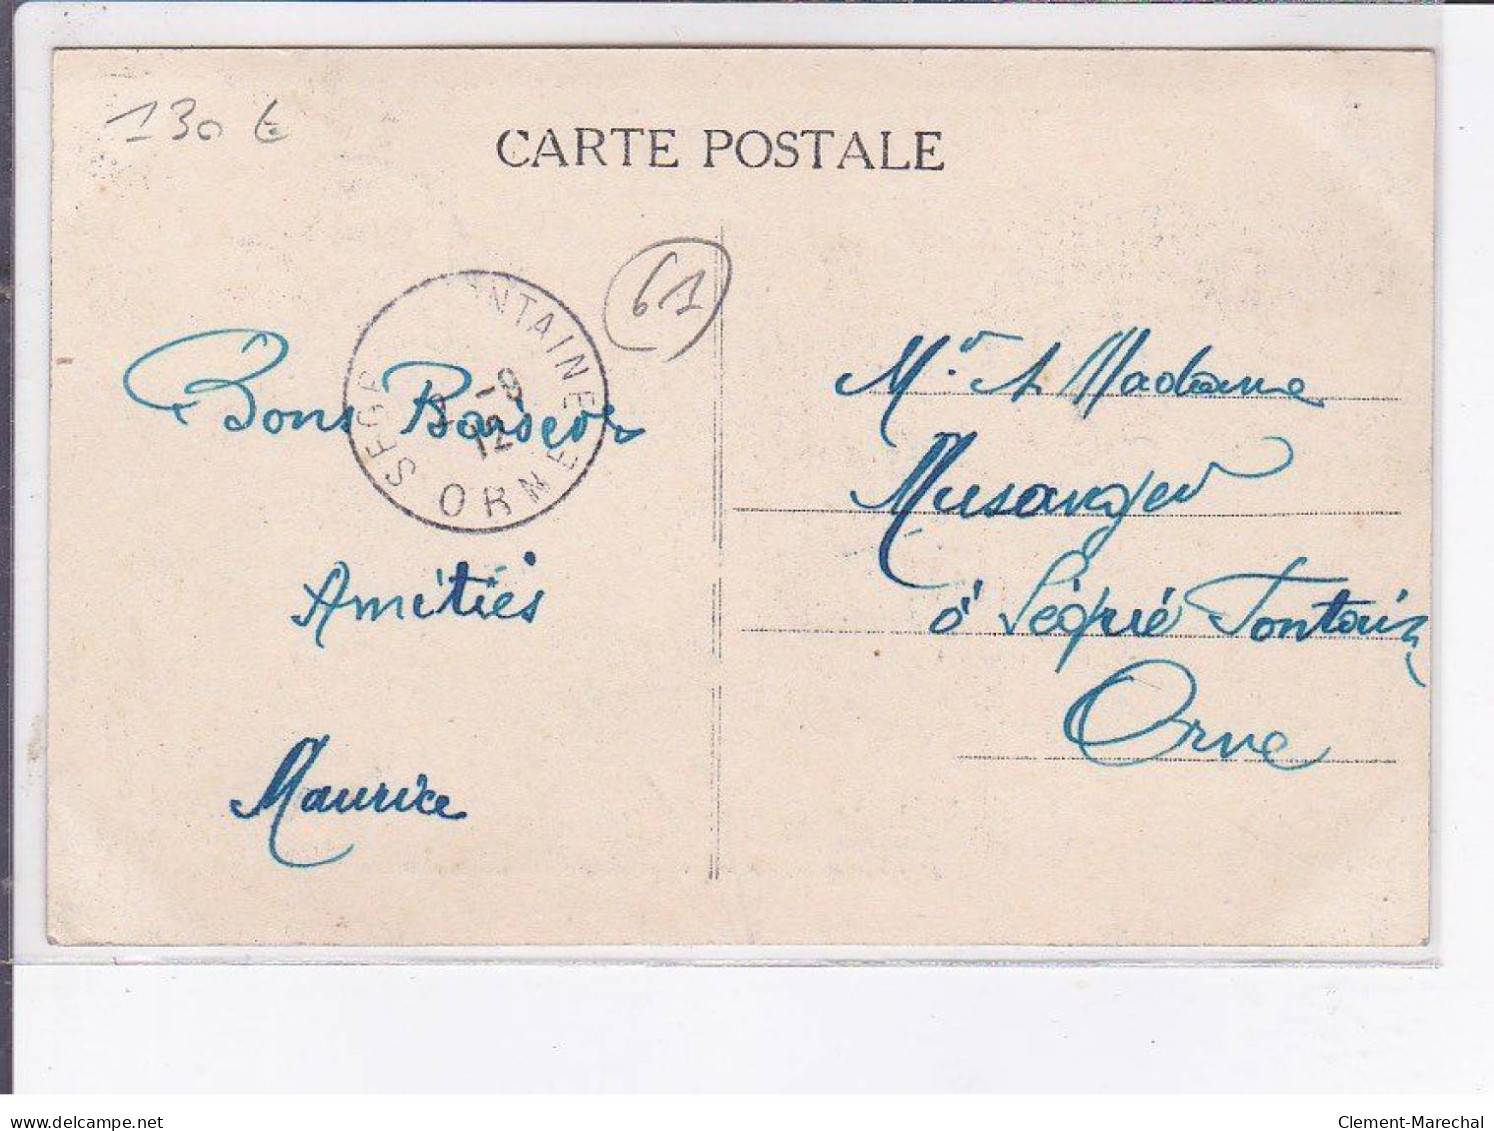 130 €
CARTE POSTALE
61
ONTAINE
SEGR
2 -9
12
ORNE
Bons Baisers
Amitiés
Maurice
Mr & Madame
Musanger
à Ségrie Fontain
Orne
delcampe.net
Clement-Marechal